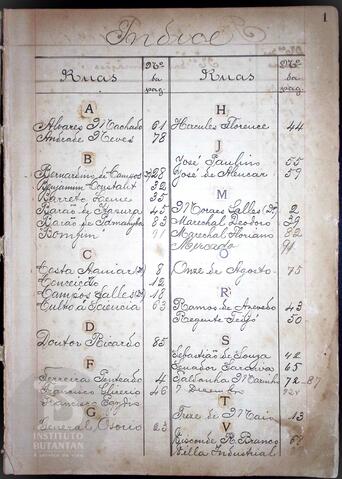 1
Indice
Ruas
Nº da pag.
A
Alvares Machado 61
Andrade Neves 78
B
Bernardino de Campos 28
Benjamin Constant 32
Barreto Leme 35
Barão de Itapura 45
Barão de Parnahyba 83
Bomfim
C
Costa Aguiar 8
Conceição 12
Campos Salles 18
Culto á Sciencia 63
D
Doutor Ricardo 85
F
Ferreira Penteado 4
Francisco Glicerio 46
Francisco
G
General Osorio 23
Ruas
Nº da pag.
H
Hercules Florence 44
J
José Paulino 55
José de Alencar 59
M
Moraes Salles 2
Marechal Deodoro 39
Marechal Floriano 82
Mercado
O
Onze de Agosto 75
R
Ramos de Azevedo 43
Regente Feijó 50
S
Sebastião de Souza 42
Senador Saraiva 65
Saldanha Marinho 72-87
7 Dezembro
T
Treze de Maio 13
V
Visconde R. Branco 69
Villa Industrial
INSTITUTO
BUTANTAN
A serviço da vida